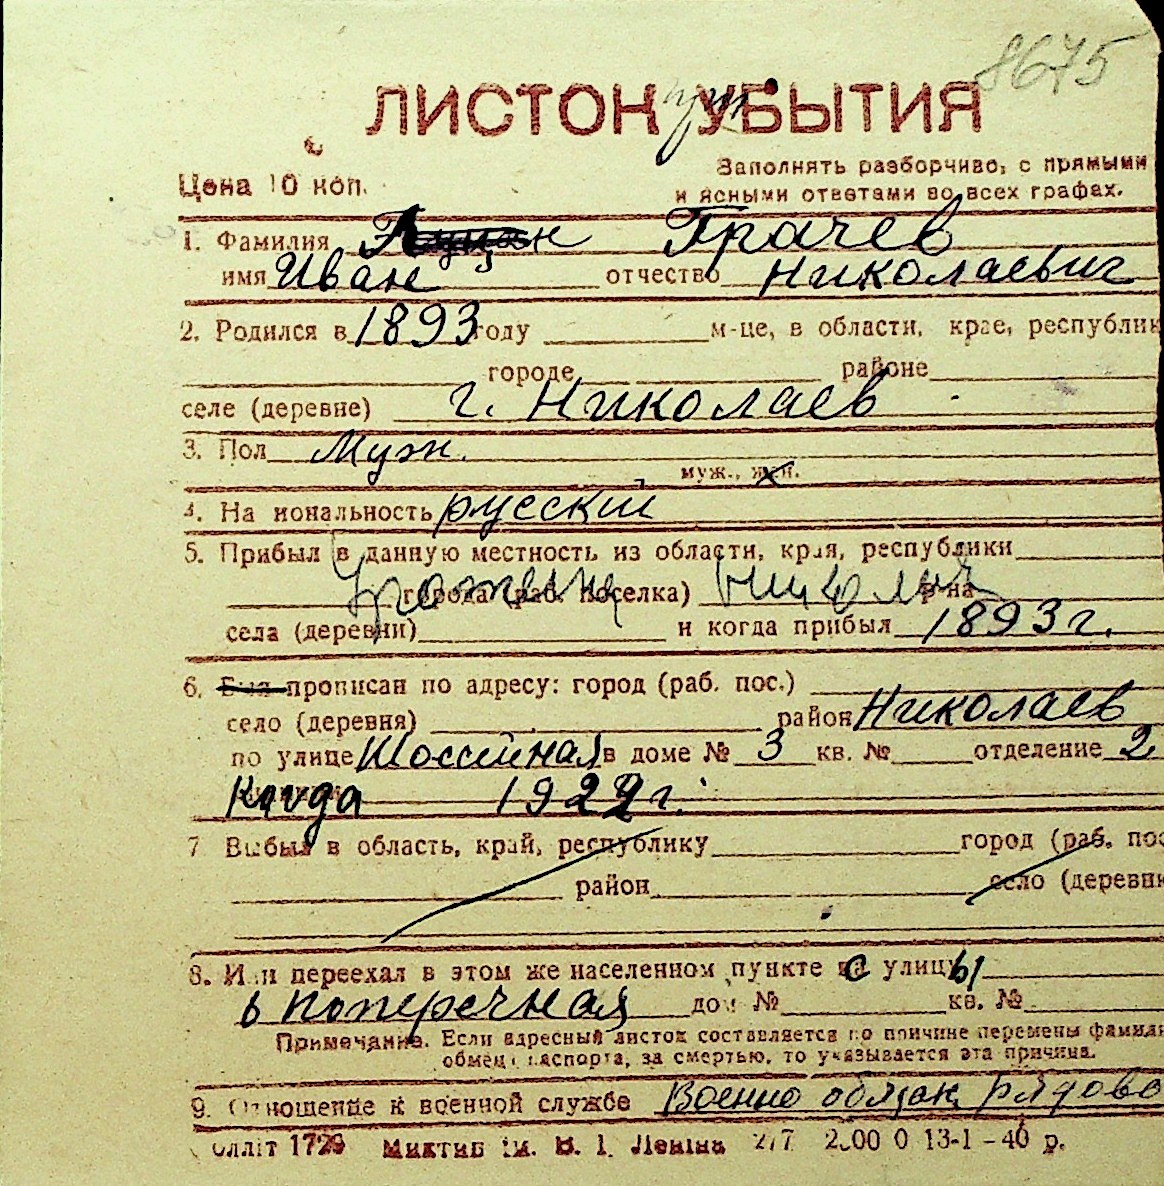 8675
ЛИСТОК УБЫТИЯ
Цена 10 коп.
Заполнять разборчиво, с прямыми
и ясными ответами во всех графах.
1. Фамилия Грачев
имя Иван отчество Николаевич
2. Родился в 1893 году м-це, в области, крае, республик
городе районе
селе (деревне) г. Николаев
3. Пол Муж.
муж., жен.
4. На иональность русский
5. Прибыл в данную местность из области, края, республики
Урожениц города (раб. поселка) р-на
села (деревни) и когда прибыл 1893 г.
6. Был прописан по адресу: город (раб. пос.)
село (деревня) район Николаев
по улице Шоссейная в доме № 3 кв. № отделение 2
Когда 1922 г.
7 Выбыл в область, край, республику город (раб. пос
район село (деревня
8. Или переехал в этом же населенном пункте с улицы
6 поперечная дом № кв. №
Примечание. Если адресный листок составляется по причине перемены фамили
обмена паспорта, за смертью, то указывается эта причина.
9. Отношение к военной службе Военно обязан рядово
блліт 1729 Миктиб ім. В. І. Леніна 277 2000 0 13-1-40 р.